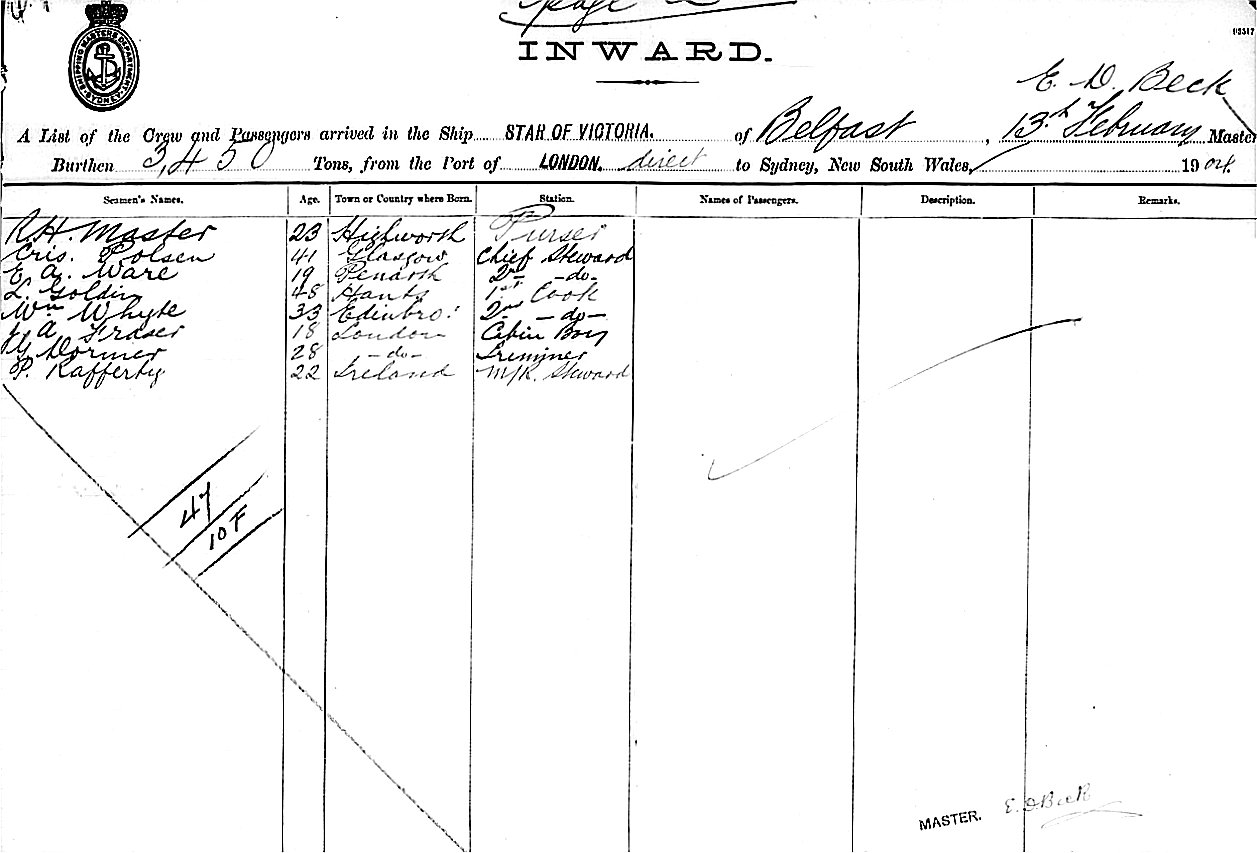 Page 2
INWARD.
03517
SHIPPING MASTERS DEPARTMENT SYDNEY
E. D. Beck
A List of the Crew and Passengers arrived in the Ship STAR OF VICTORIA. of Belfast, 13th February Master
Burthen 3,450 Tons, from the Port of LONDON. direct to Sydney, New South Wales, 1904
Seamen's Names. Age. Town or Country where Born. Station. Names of Passengers. Description. Remarks.
R. H. Master 23 Highworth Purser
Cris. Polsen 41 Glasgow Chief Steward
E. A. Ware 19 Penarth 2nd -do-
L. Goldin 48 Hants 1st Cook
Wm Whyte 33 Edinbro' 2nd -do-
A Fraser 18 London Cabin Boy
Dormer 28 -do- Trimmer
P. Rafferty 22 Ireland M/R. Steward
47
10 F
MASTER. E. D Beck